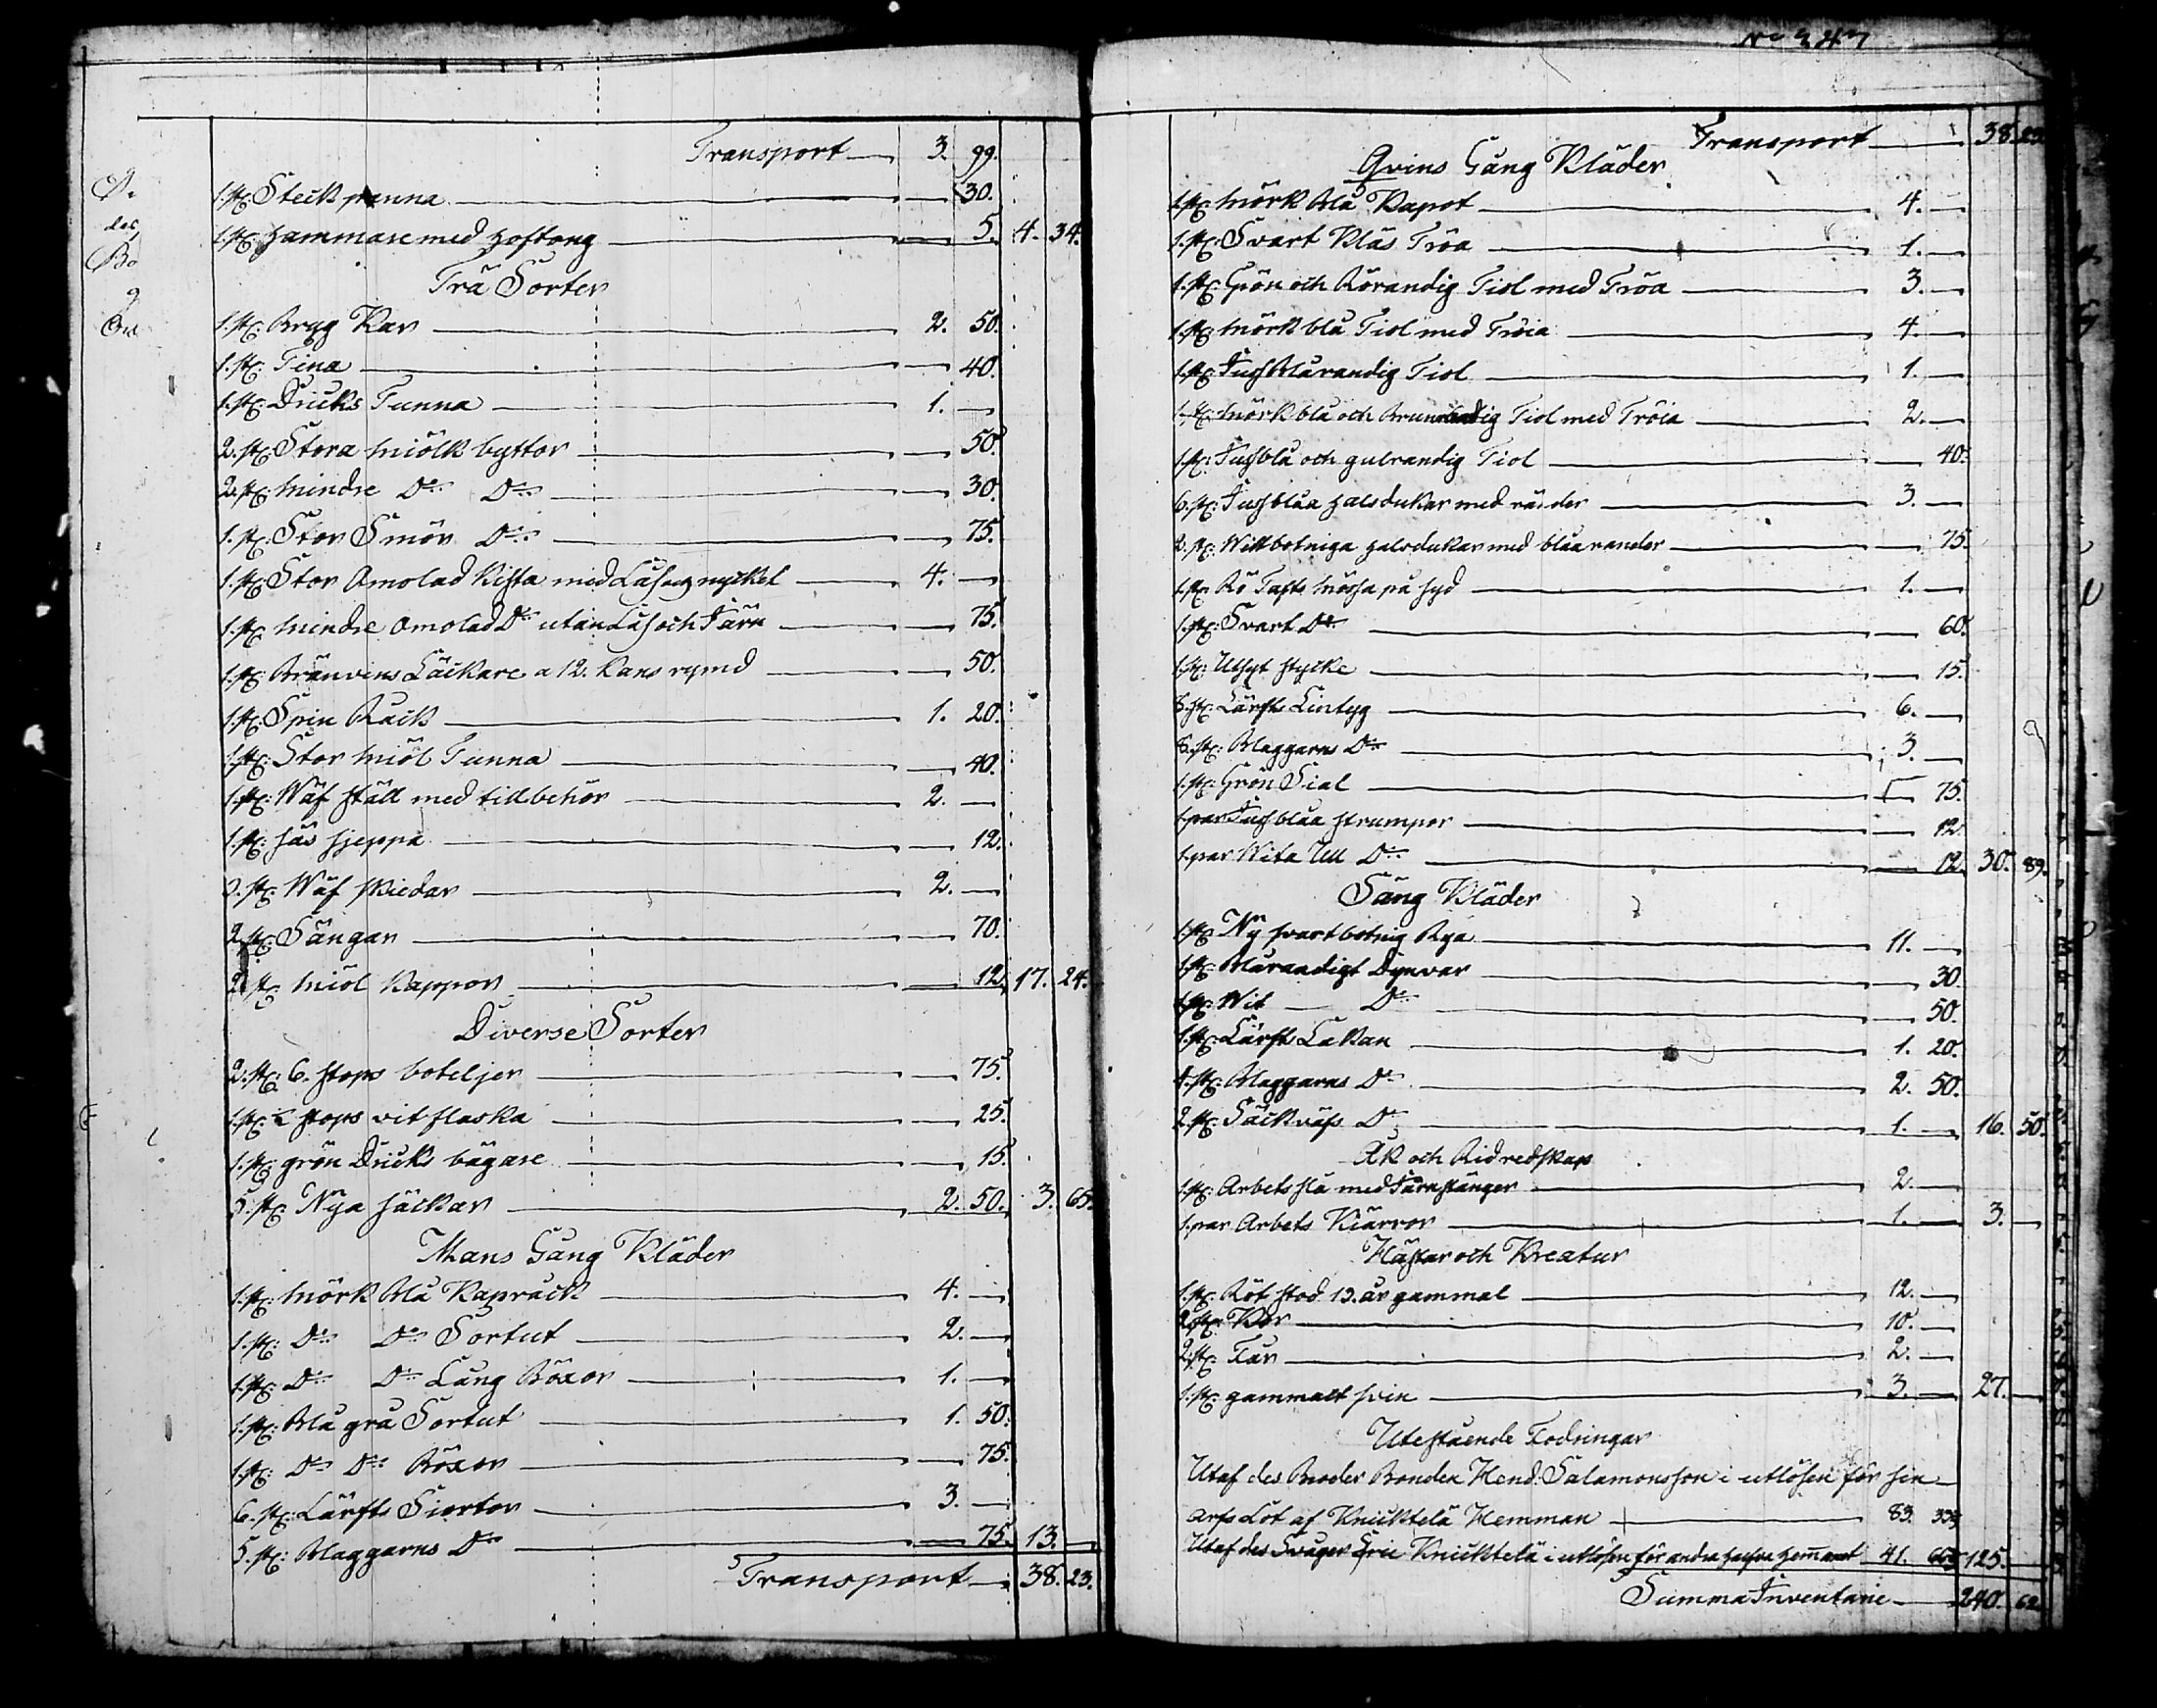 Transport 3. 99.
1. st: Steck panna 30.
1. st: Hammare med Hoftong 5. 4. 34.
Trä Sorter
1. st: Bryg Kar 2. 50.
1. st: Tina 40.
1. st: Dricks Tunna 1.
2. st: Stora miölk byttor 50.
2. st: mindre Do Do 30.
1. st: Stor Smör Do 75.
1. st: Stor Omolad Kista med Lås och nyckel 4.
1. st: mindre omolad Do utan Lås och Järn 75.
1. st: Bränvins Läckare a 12. Kans rymd 50.
1. st: Spin Råck 1. 20.
1. st: Stor miöl Tunna 40.
1. st: Wäf ställ med tillbehör 2.
1. st: sås skjeppa 12.
3. st: Wäf skiedar 2.
2. st: Sängar 70.
2. st: miöl Kappor 12. 17. 24.
Diverse Sorter
2. st: 6. stops boteljer 75.
1. st: 2 stops vit flaska 25.
1. st: grön Dricks bägare 15.
5. st: Nya säckar 2. 50. 3. 65.
Mans Gång Kläder
1. st: mörk Blå Kapråck 4.
1. st: Do Do Sortut 2.
1. st: Do Do Lång Böxor 1.
1. st: Blå grå Sortut 1. 50.
1. st: Do Do Böxor 75.
6. st: Lärfts Siortor 3.
5. st: Blaggarns Do 75. 13.
Transport 38. 23.
No 347
Transport 38. 23.
Qvins Gång Kläder
1. st: mörk Blå Kapot 4.
1. st: Svart Kläs Tröa 1.
1. st: Grön och Rörandig Tiol med Tröa 3.
1. st: mörk blå Tiol med Tröia 4.
1. st: Jus Blårandig Tiol 1.
1. st: mörk blå och Brunrandig Tiol med Tröia 2.
1. st: Jusblå och gulrandig Tiol 40.
6. st: Jusblåa Halsdukar med ränder 3.
2. st: Witt botniga Halsdukar med blåa ränder 75.
1. st: Rö Tafts mössa på syd 1.
1. st: Svart Do 60.
1. st: Utsyt stycke 15.
8. st: Lärfts Lintyg 6.
8. st: Blaggarns Do 3.
1. st: Grön Sial 75.
1. par Jusblåa strumpor 12.
1. par Wita Ull Do 12. 30. 89.
Säng Kläder
1. st: Ny svartbotnig Rya 11.
1. st: Blårandigt Dynvar 30.
1. st: Wit Do 50.
1. st: Lärfts Lakan 1. 20.
4. st: Blaggarns Do 2. 50.
2. st: Säckväfs Do 1. 16. 50.
Åk och Ridredskap
1. st: Arbets slä med Järnstänger 2.
1. par Arbets Kiärror 1. 3.
Hästar och Kreatur
1. st: Röt stod 13. år gammal 12.
2. st: Kor 10.
2. st: Får 2.
1. st: gammalt svin 3. 27.
Utestående Fodringar
Utaf des Broder Bonden Hend: Salamonsson i utlösen för sin
arfs Lot af Knicktelä Hemman 83. 33⅓
Utaf des Svåger Eric Knicktelä i utlösen för andra Hälften Hemanet 41. 66⅔ 125.
Summa Inventarie 240. 62.